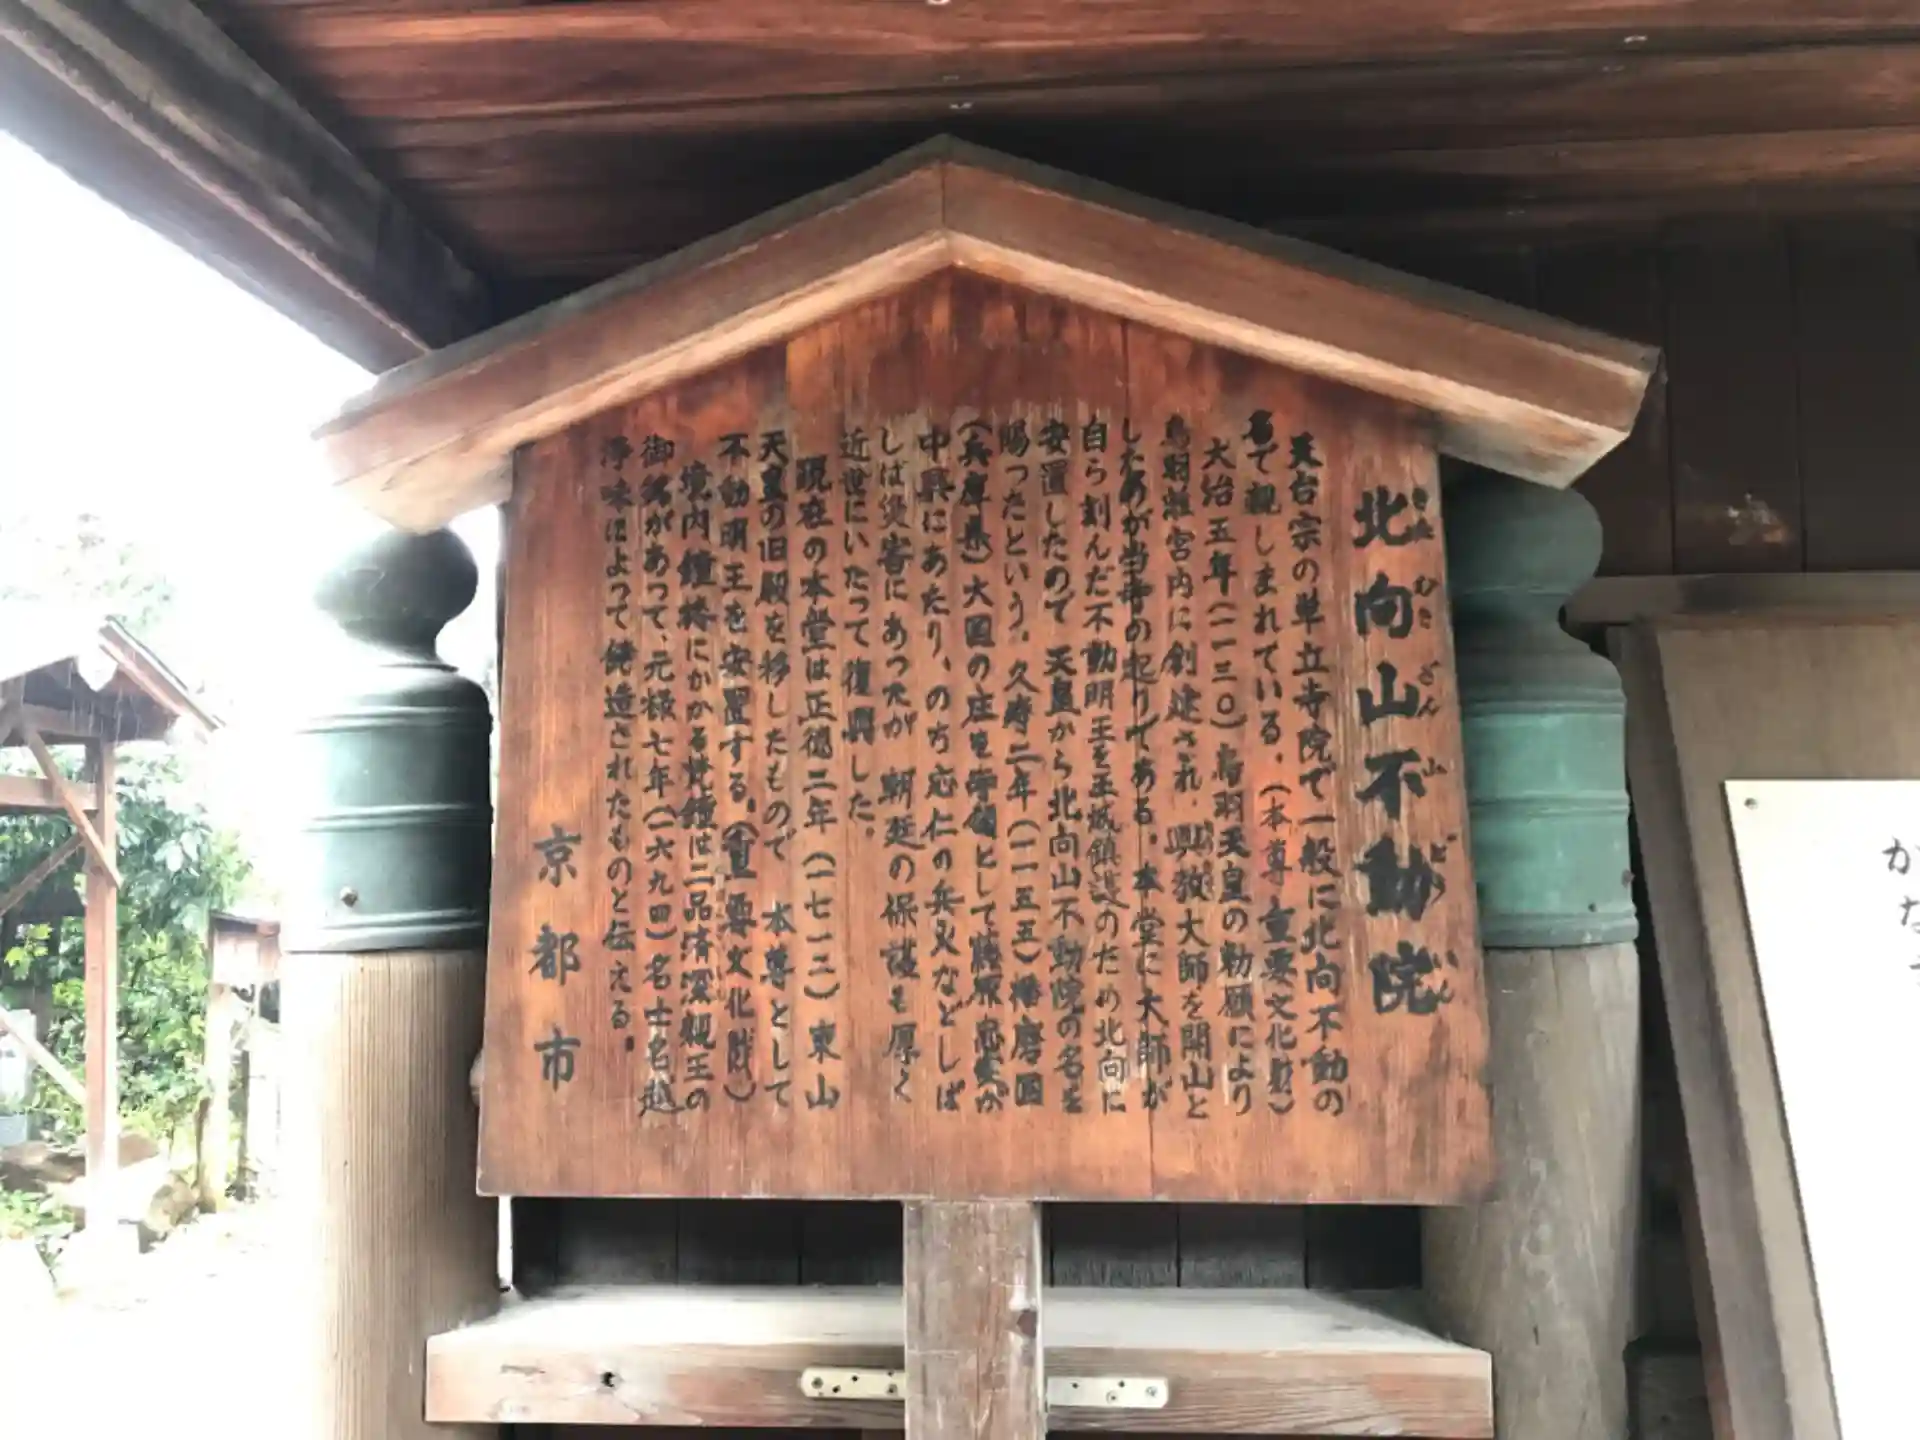 北向山不動院
きた むき ざん 山 どう いん
天台宗の単立寺院で一般に北向不動の
名で親しまれている。(本尊 重要文化財)
大治五年(一一三〇)鳥羽天皇の勅願により
鳥羽離宮内に創建され、興教大師を開山と
したのが当寺の起りである。本堂に大師が
自ら刻んだ不動明王を王城鎮護のため北向に
安置したので 天皇から北向山不動院の名を
賜ったという。久寿二年(一一五五)播磨国
(兵庫県)大国の庄を寺領として藤原忠実が
中興にあたり、のち応仁の兵火などしば
しば災害にあったが 朝廷の保護も厚く
近世にいたって復興した。
現在の本堂は正徳二年(一七一二)東山
天皇の旧殿を移したもので 本尊として
不動明王を安置する。(重要文化財)
境内鐘楼にかかる梵鐘は二品済深親王の
御銘があって、元禄七年(一六九四)名士名越
浄味によって鋳造されたものと伝える。
京都市
か
な